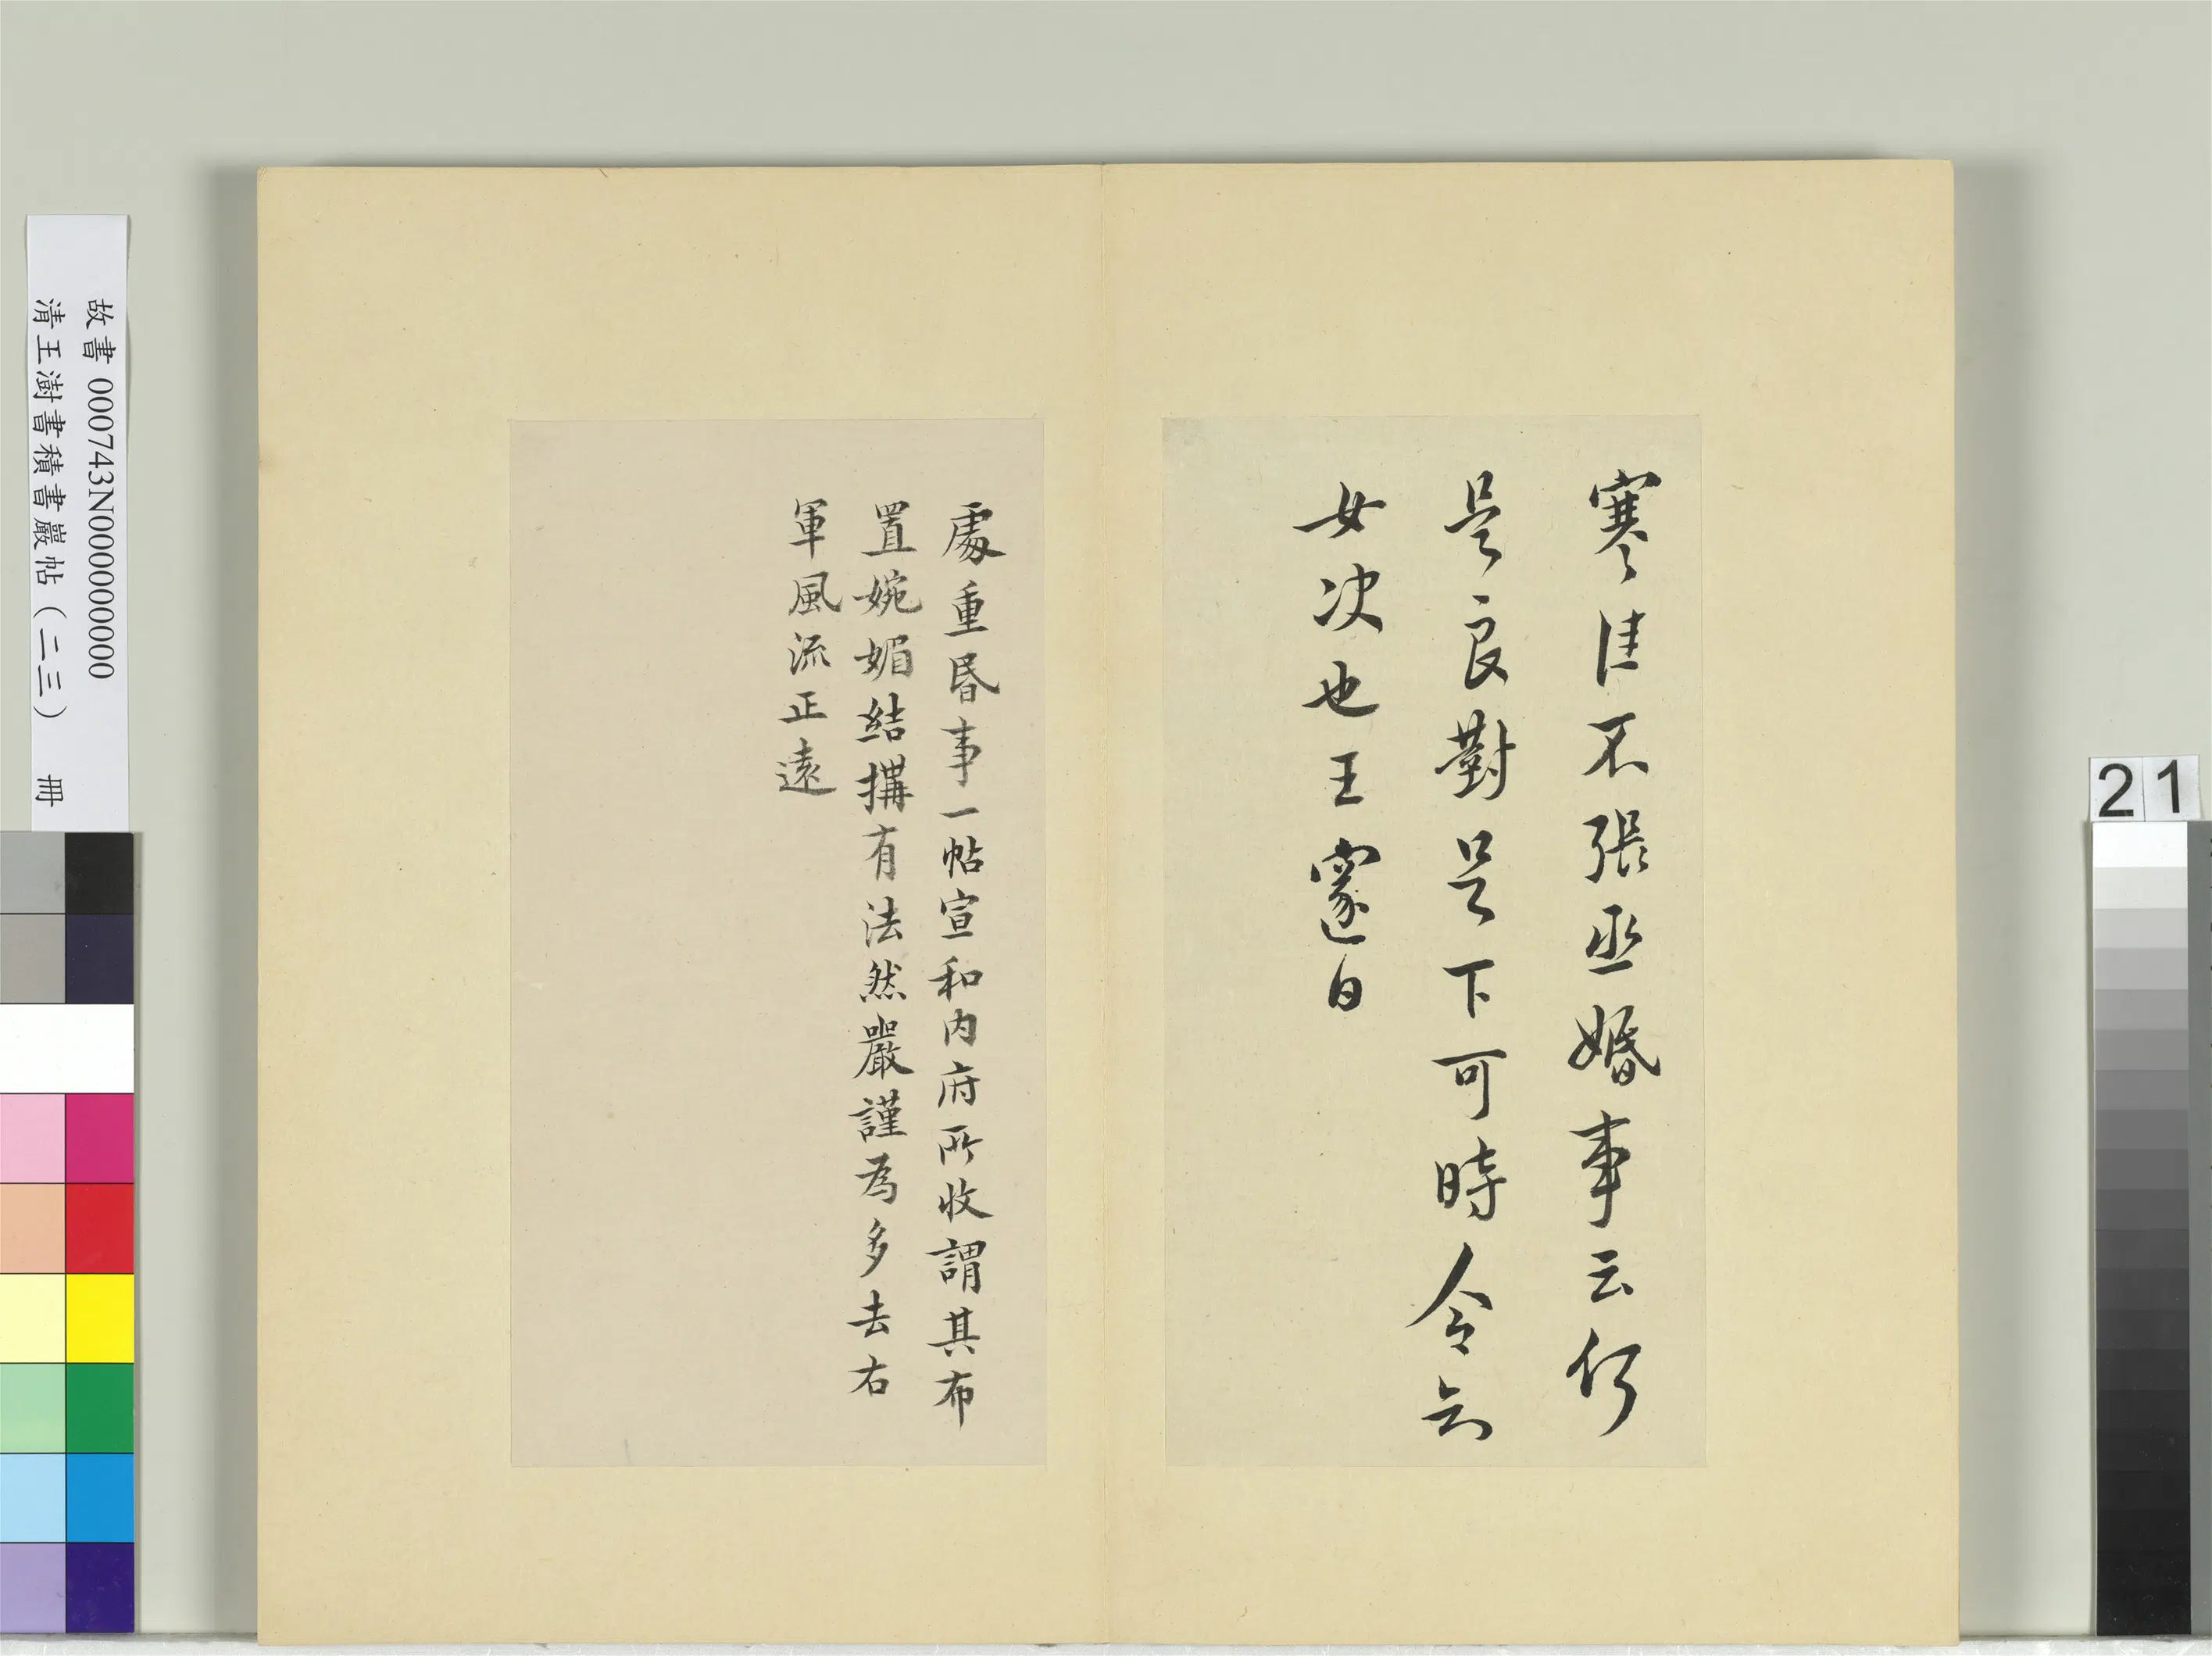 寒佳不張丞婚事云何
是良對足下可時令知
女次也王邃白
處重昏事一帖宣和内府所收謂其布
置婉媚結搆有法然嚴謹為多去右
軍風流正遠
故書 000743N000000000
清王澍書積書巖帖（二三） 冊
21